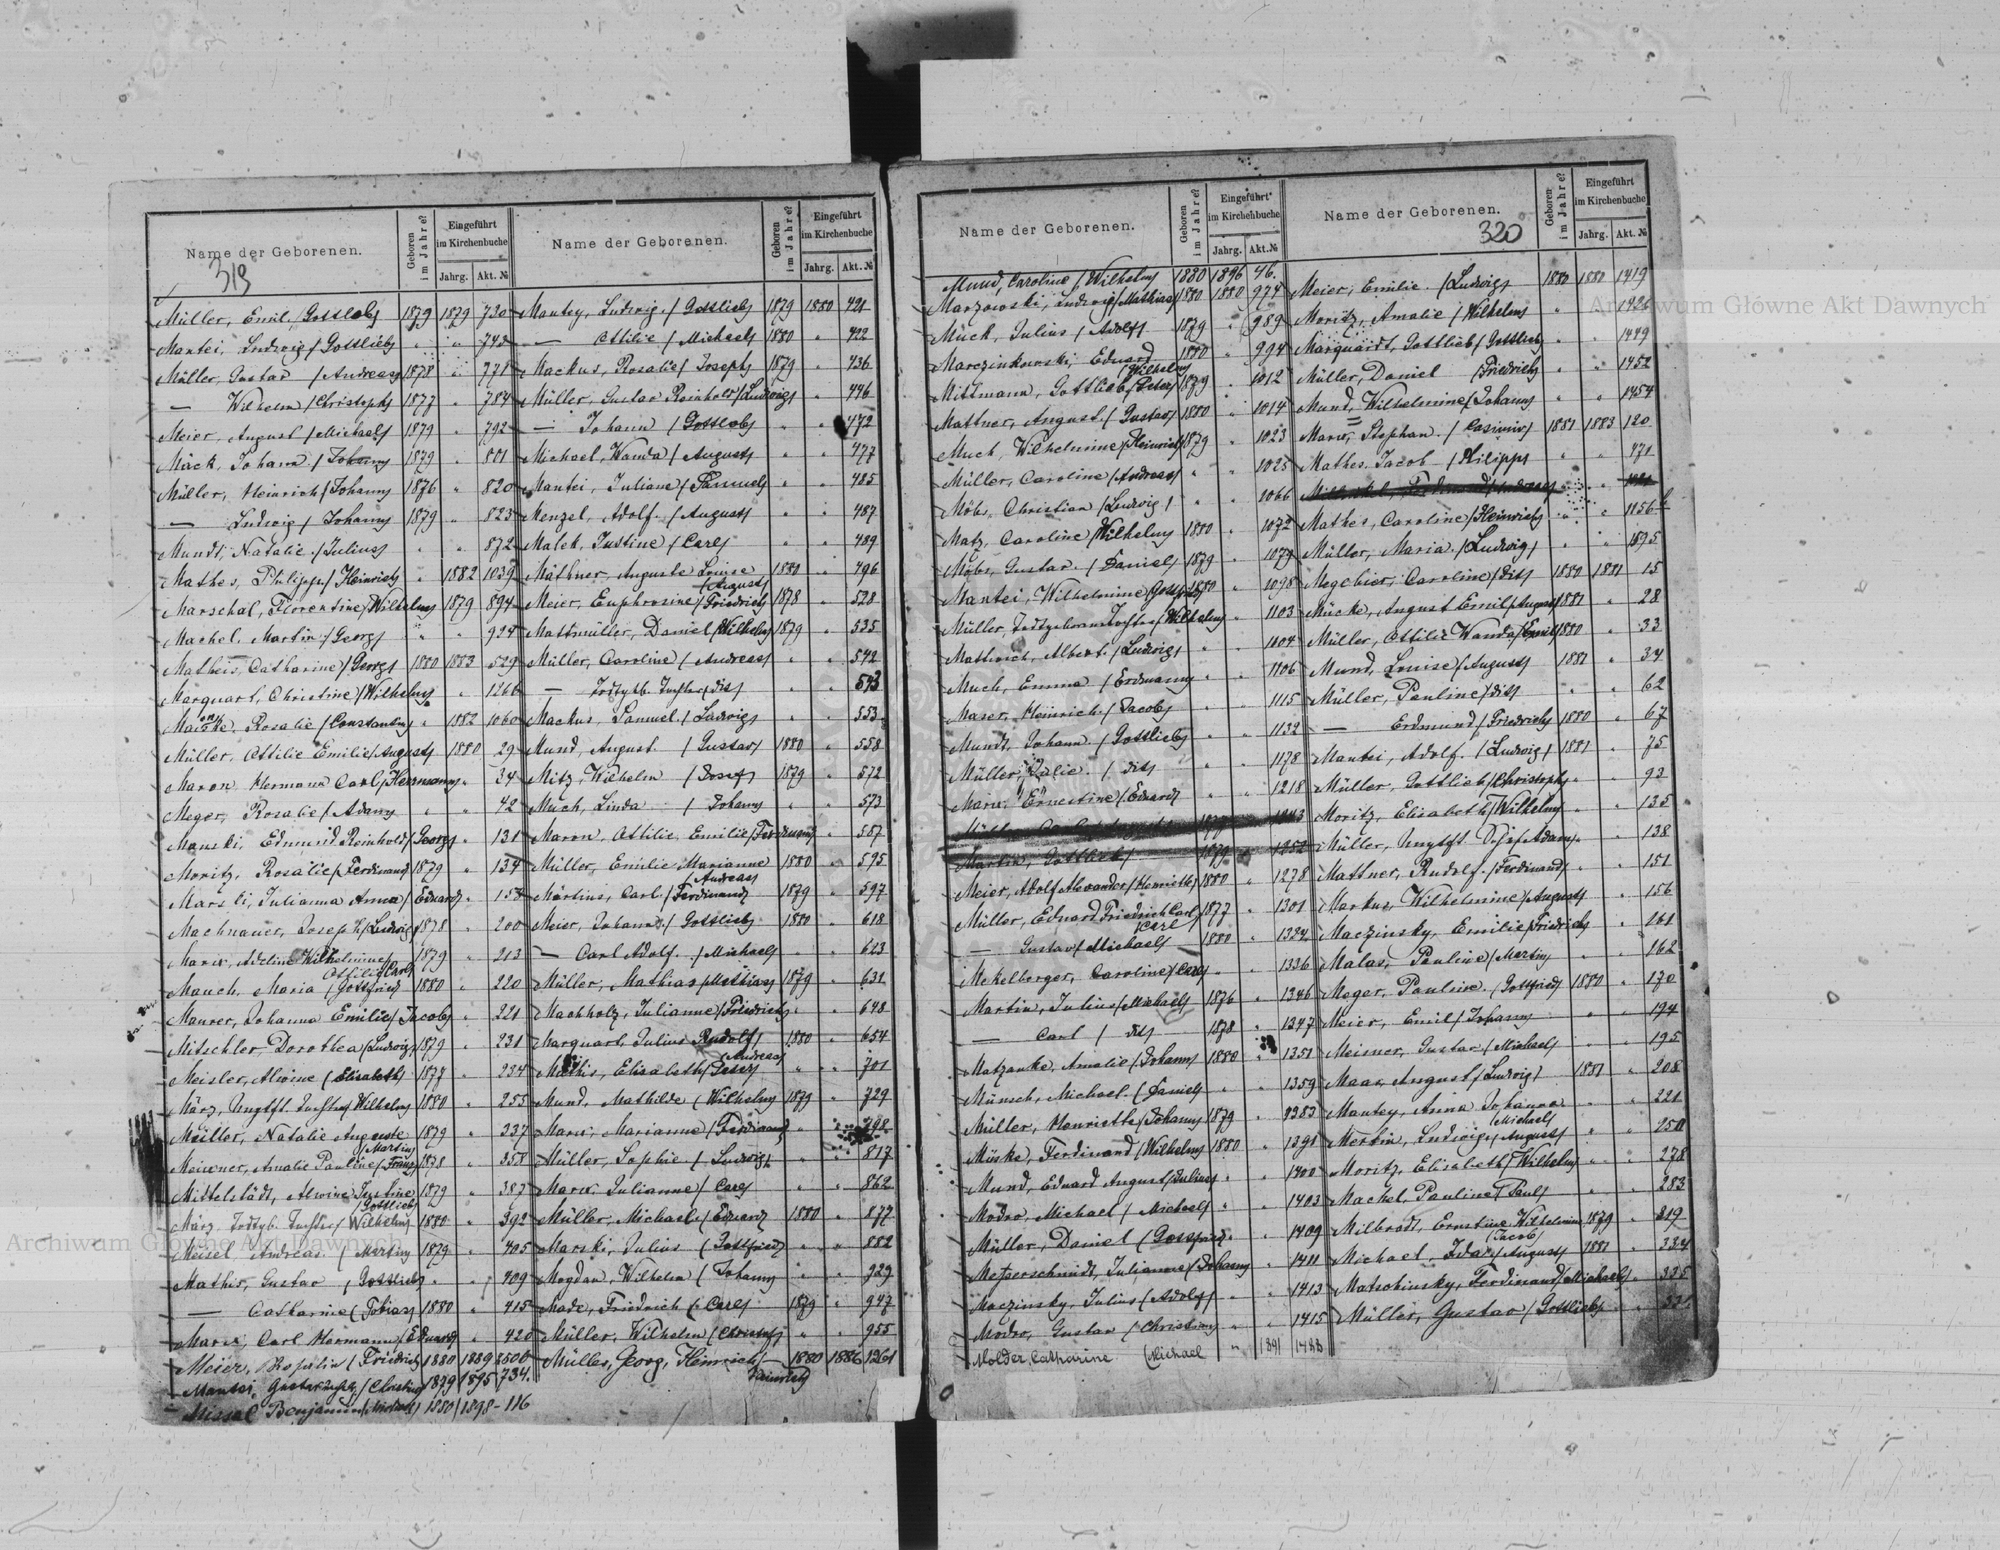 Name der Geborenen.
Geboren im Jahre?
Eingeführt im Kirchenbuche
Jahrg. Akt. №
Name der Geborenen.
Geboren im Jahre?
Eingeführt im Kirchenbuche
Jahrg. Akt. №
319
Müller, Emil /Gottlob/ 1879 1879 720
Mantei, Ludwig /Gottlieb/ " "
Müller, Gustav /Andreas/ 1878 " 771
— Wilhelm /Christoph/ 1877 " 784
Meier, August /Michael/ 1879 " 792
Mück, Johann /Johann/ 1879 " 801
Müller, Heinrich /Johann/ 1876 " 820
— Ludwig /Johann/ 1879 " 823
Mundt, Natalie /Julius/ " " 872
Mathes, Philipp /Heinrich/ " 1882 1039
Marschal, Florentine /Wilhelm/ 1879 894
Machel, Martin /Georg/ " " 924
Matheis, Catharine /Georg/ 1880 1883 529
Marquart, Christine /Wilhelm/ " 1266
Rosalie /Constantin/ " 1882 1060
Müller, Ottilie Emilie /August/ 1880 29
Maron, Hermann Carl /Herrmann/ " 34
Meger, Rosalie /Adam/ " " 42
Manski, Edmund Reinhold /Georg/ " 131
Moritz, Rosalie /Ferdinand/ 1879 " 134
Marski, Julianna Anna /Eduard/ " 158
Machnauer, Joseph /Ludwig/ 1878 " 200
Marix, Adeline Wilhelmine 1879 " 213
Ottilie /Carl/
Mauch, Maria /Gottfried/ 1880 " 220
Maurer, Johanna Emilie /Jacob/ " " 221
Mitschler, Dorothea /Ludwig/ 1879 " 231
Meisler, Alwine /Elisabeth/ 1877 " 234
März, Ungtft. Tochter /Wilhelm/ 1880 " 255
Müller, Natalie Auguste 1879 " 337
/Martin/
Meixner, Amalie Pauline /Franz/ 1878 " 358
Mittelstädt, Alwine Justine 1879 " 387
/Gottlieb/
März, Todtgb. Tochter /Wilhelm/ 1880 " 392
Meisel, Andreas /Martin/ 1879 " 405
Mathis, Gustav /Gottlieb/ " " 409
— Catharine /Tobias/ 1880 " 415
Marix, Carl Hermann /Eduard/ " 420
Meier, Rosalie /Friedrich/ 1880 1889 1500
Mantei, Gustav /Christian/ 1879 1895 734.
Missal Benjamin /Michael/ 1880 1898 - 116
Mantey, Ludwig /Gottlieb/ 1879 1880 421
— Ottilie /Michael/ 1880 " 422
Mackus, Rosalie /Joseph/ 1879 " 436
Müller, Gustav Reinhold /Ludwig/ " 446
— Johann /Gottlob/ " " 472
Michael, Wanda /August/ " " 477
Mantei, Juliane /Samuel/ " " 485
Menzel, Adolf /August/ " " 487
Malek, Justine /Carl/ " " 489
Mathner, Auguste Louise 1880 " 496
/August/
Meier, Euphrosine /Friedrich/ 1878 " 528
Mattmüller, Daniel /Wilhelm/ 1879 " 535
Müller, Caroline /Andreas/ " " 542
— Todtgb. Tochter /dit/ " " 543
Mackus, Samuel /Ludwig/ " " 553
Mund, August /Gustav/ 1880 " 558
Mitz, Wilhelm /Josef/ 1879 " 572
Much, Linda /Johann/ " " 573
Maron, Ottilie Emilie /Ferdinand/ " 587
Müller, Emilie Marianne 1880 " 595
/Andreas/
Märtins, Carl /Ferdinand/ 1879 " 597
Meier, Johann /Gottlieb/ 1880 " 618
— Carl Adolf /Michael/ " " 623
Müller, Mathias /Mathias/ 1879 " 631
Machholz, Julianne /Friedrich/ " " 648
Marquart, Julius Rudolf 1880 " 654
/Andreas/
Mathis, Elisabeth /Peter/ " " 701
Mund, Mathilde /Wilhelm/ 1879 " 729
Marix, Marianne /Ferdinand/ " " 798
Müller, Sophie /Ludwig/ " " 817
Marix, Julianne /Carl/ " " 862
Müller, Michael /Eduard/ 1880 " 877
Marski, Julius /Gottfried/ " " 882
Mogdan, Wilhelm /Johann/ " " 929
Made, Friedrich /Carl/ 1879 " 947
Müller, Wilhelm /Christof/ " " 955
Müller, Georg, Heinrich /— 1880 1886 1261
Heinrich/
Name der Geborenen.
Geboren im Jahre?
Eingeführt im Kirchenbuche
Jahrg. Akt. №
Name der Geborenen.
320
Geboren im Jahre?
Eingeführt im Kirchenbuche
Jahrg. Akt. №
Mund, Caroline /Wilhelm/ 1880 1896 46.
Marzowski, Ludwig /Mathias/ 1880 1880 974
Mück, Julius /Adolf/ 1879 " 989
Marczinkowski, Eduard 1880 " 994
/Wilhelm/
Mittmann, Gottlieb /Peter/ 1879 " 1012
Mattner, August /Gustav/ 1880 " 1014
Much, Wilhelmine /Heinrich/ 1879 " 1023
Müller, Caroline /Andreas/ " " 1025
Möbs, Christian /Ludwig/ " " 1066
Matz, Caroline /Wilhelm/ 1880 " 1072
Möbs, Gustav /Daniel/ 1879 " 1079
Mantei, Wilhelmine /Gottfried/ 1880 " 1098
Müller, Todtgeborene Tochter /Wilhelm/ " 1103
Mathwich, Albert /Ludwig/ " " 1104
Much, Emma /Erdmann/ " " 1106
Maser, Heinrich /Jacob/ " " 1115
Mundt, Johann /Gottlieb/ " " 1132
Müller, Julie /dit/ " " 1178
Marix, Ernestine /Eduard/ " " 1218
Martin, Gottlieb 1879 " 1252
Meier, Adolf Alexander /Henriette/ 1880 " 1278
Müller, Eduard Friedrich Carl 1877 " 1301
/Carl/
— Gustav /Michael/ 1880 " 1324
Mekelberger, Caroline /Carl/ " " 1336
Martin, Julius /Michael/ 1876 " 1346
— Carl /dit/ 1878 " 1347
Matzanke, Amalie /Johann/ 1880 " 1351
Münsch, Michael /Daniel/ " " 1359
Müller, Henriette /Johann/ 1879 " 1383
Müske, Ferdinand /Wilhelm/ 1880 " 1391
Mund, Eduard August /Julius/ " " 1400
Modro, Michael /Michael/ " " 1403
Müller, Daniel /Gottfried/ " " 1409
Metzerschmidt, Julianne /Johann/ " 1411
Maczinsky, Julius /Adolf/ " " 1413
Modro, Gustav /Christian/ " " 1415
Molder, Catharine /Michael " 1891 1488
Meier, Emilie /Ludwig/ 1880 1880 1419
Moritz, Amalie /Wilhelm/ " " 1426
Marquardt, Gottlieb /Gottlieb/ " " 1449
Müller, Daniel /Friedrich/ " " 1452
Mund, Wilhelmine /Johann/ " " 1454
Marix, Stephan /Casimir/ 1881 1883 120
Mathes, Jacob /Philipp/ " " 471
Mathes, Caroline /Heinrich/ " " 1156
Müller, Maria /Ludwig/ " " 1395
Megebier, Caroline /dit/ 1880 1881 15
Mücke, August Emil /August/ 1881 " 28
Müller, Ottilie Wanda /Emil/ 1880 " 33
Mund, Louise /August/ 1881 " 34
Müller, Pauline /dit/ " " 62
— Erdmund /Friedrich/ 1880 " 67
Mantei, Adolf /Ludwig/ 1881 " 75
Müller, Gottlieb /Christoph/ " " 93
Moritz, Elisabeth /Wilhelm/ " " 135
Müller, Ungtft. /Adam/ " " 138
Mattner, Rudolf /Ferdinand/ " " 151
Markus, Wilhelmine /August/ " " 156
Maczinsky, Emilie /Friedrich/ " " 161
Malas, Pauline /Martin/ " " 162
Meger, Pauline /Gottfried/ 1880 " 170
Meier, Emil /Johann/ " " 194
Meisner, Gustav /Michael/ " " 195
Maas, August /Ludwig/ 1881 " 208
Mantey, Anna Johanna " " 221
/Michael/
Mertin, Ludwig /August/ " " 250
Moritz, Elisabeth /Wilhelm/ " " 278
Machel, Pauline /Paul/ " " 283
Milbrodt, Ernstine Wilhelmine 1879 " 319
/Jacob/
Michael, Ida /August/ 1881 " 334
Matschinsky, Ferdinand /Michael/ " 335
Müller, Gustav /Gottlieb/ " "
Archiwum Główne Akt Dawnych
Archiwum Główne Akt Dawnych